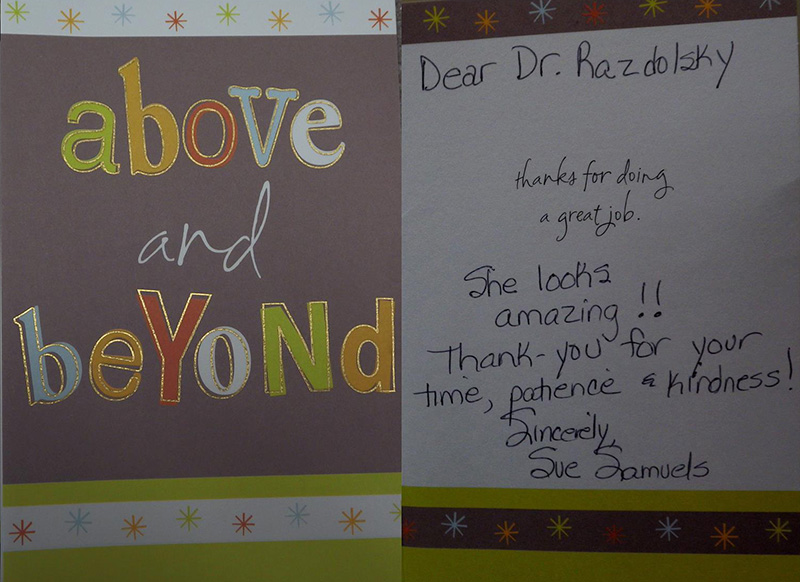 above
and
beYoNd
Dear Dr. Razdolsky
thanks for doing
a great job.
She looks
amazing !!
Thank-you for your
time, patience & kindness!
Sincerely,
Sue Samuels